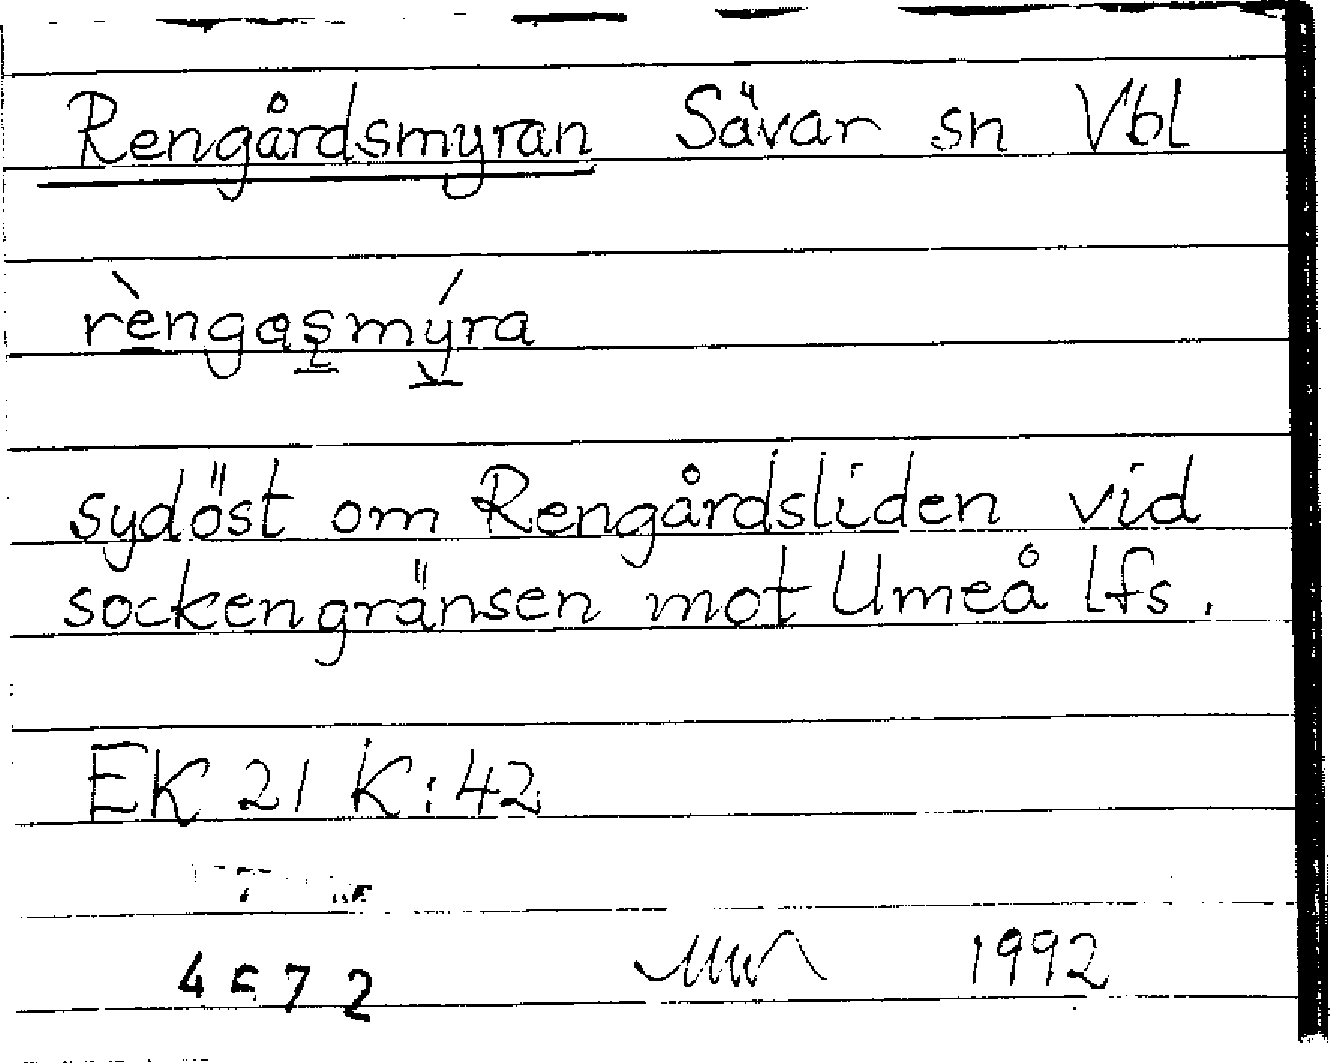 Rengårdsmyran Sävar sn Vbl
rèngasmýra
sydöst om Rengårdsliden vid
sockengränsen mot Umeå lfs.
EK 21 K:42
1992